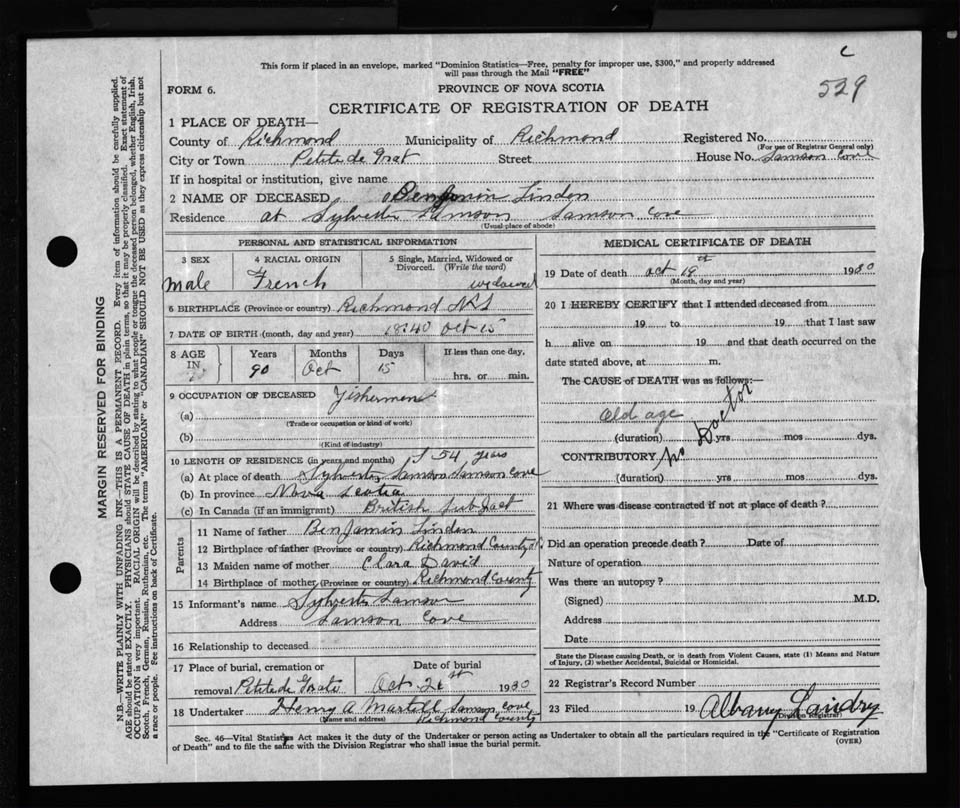 c
529
This form if placed in an envelope, marked "Dominion Statistics—Free, penalty for improper use, $300," and properly addressed
will pass through the Mail "FREE"
FORM 6.
PROVINCE OF NOVA SCOTIA
CERTIFICATE OF REGISTRATION OF DEATH
1 PLACE OF DEATH—
County of Richmond Municipality of Richmond Registered No.
(For use of Registrar General only)
City or Town Petite de Grat Street House No. Samson Cove
If in hospital or institution, give name
2 NAME OF DECEASED Benjamin Linden
Residence at Sylvester Samson Samson Cove
(Usual place of abode)
PERSONAL AND STATISTICAL INFORMATION
3 SEX
male
4 RACIAL ORIGIN
French
5 Single, Married, Widowed or
Divorced. (Write the word)
widowed
6 BIRTHPLACE (Province or country) Richmond N S
7 DATE OF BIRTH (month, day and year) 1840 Oct 15
8 AGE IN
Years
90
Months
Oct
Days
15
If less than one day,
hrs. or min.
9 OCCUPATION OF DECEASED Fishermen
(a)
(Trade or occupation or kind of work)
(b)
(Kind of industry)
10 LENGTH OF RESIDENCE (in years and months) 54 years
(a) At place of death Sylvester Samson Samson Cove
(b) In province Nova Scotia
(c) In Canada (if an immigrant) British subJect
Parents
11 Name of father BenJamin Linden
12 Birthplace of father (Province or country) Richmond County
13 Maiden name of mother Clara David
14 Birthplace of mother (Province or country) Richmond County
15 Informant's name Sylvester Samson
Address Samson Cove
16 Relationship to deceased
17 Place of burial, cremation or
removal Petite de Grate
Date of burial
Oct 21st 1930
18 Undertaker Henry A Martell Samson Cove
(Name and address) Richmond County
MEDICAL CERTIFICATE OF DEATH
19 Date of death oct 19th 1930
(Month, day and year)
20 I HEREBY CERTIFY that I attended deceased from
19 to 19 that I last saw
h alive on 19 and that death occurred on the
date stated above, at m.
The CAUSE OF DEATH was as follows:—
old age
no Doctor
(duration) yrs mos dys.
CONTRIBUTORY
(duration) yrs mos dys.
21 Where was disease contracted if not at place of death?
Did an operation precede death? Date of
Nature of operation
Was there an autopsy?
(Signed) M.D.
Address
Date
State the Disease causing Death, or in death from Violent Causes, state (1) Means and Nature
of Injury, (2) whether Accidental, Suicidal or Homicidal.
22 Registrar's Record Number
23 Filed 19 Albany Landry
(Division Registrar)
Sec. 46—Vital Statistics Act makes it the duty of the Undertaker or person acting as Undertaker to obtain all the particulars required in the "Certificate of Registration
of Death" and to file the same with the Division Registrar who shall issue the burial permit.
(OVER)
MARGIN RESERVED FOR BINDING
N.B.—WRITE PLAINLY WITH UNFADING INK—THIS IS A PERMANENT RECORD. Every item of information should be carefully supplied.
AGE should be stated EXACTLY. PHYSICIANS should STATE CAUSE OF DEATH in plain terms, so that it may be properly classified. Exact statement of
OCCUPATION is very important. RACIAL ORIGIN will be described by stating to what people or tongue the deceased person belonged, whether English, Irish,
Scotch, French, German, Russian, Ruthenian, etc. The terms "AMERICAN" or "CANADIAN" SHOULD NOT BE USED as they express citizenship but not
a race or people. See instructions on back of Certificate.